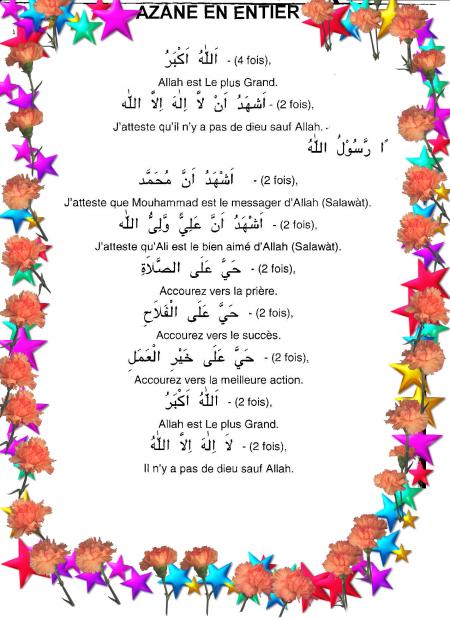 AZANE EN ENTIER
اَللّٰهُ اَكْبَرُ - (4 fois),
Allah est Le plus Grand.
اَشْهَدُ اَنْ لَّا اِلٰهَ اِلَّا اللّٰه - (2 fois),
J'atteste qu'il n'y a pas de dieu sauf Allah.
ًا رَّسُوْلُ اللّٰهُ
اَشْهَدُ اَنَّ مُحَمَّد - (2 fois),
J'atteste que Mouhammad est le messager d'Allah (Salawàt).
اَشْهَدُ اَنَّ عَلِيًّ وَّلِىُّ اللّٰه - (2 fois),
J'atteste qu'Ali est le bien aimé d'Allah (Salawàt).
حَيَّ عَلَى الصَّلَاةِ - (2 fois),
Accourez vers la prière.
حَيَّ عَلَى الْفَلَاحِ - (2 fois),
Accourez vers le succès.
حَيَّ عَلَى خَيْرِ الْعَمَلِ - (2 fois),
Accourez vers la meilleure action.
اَللّٰهُ اَكْبَرُ - (2 fois),
Allah est Le plus Grand.
لَا اِلٰهَ اِلاَّ اللّٰهُ - (2 fois),
Il n'y a pas de dieu sauf Allah.